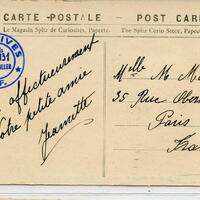 CARTE-POSTALE - POST CAR
Le Magasin Spitz de Curiosités, Papeete. The Spitz Curio Store, Papeete
IVES
1931
Affectueusement
Votre petite amie
Jeannette
Melle M. M
35 Rue Ober
Paris
Fra